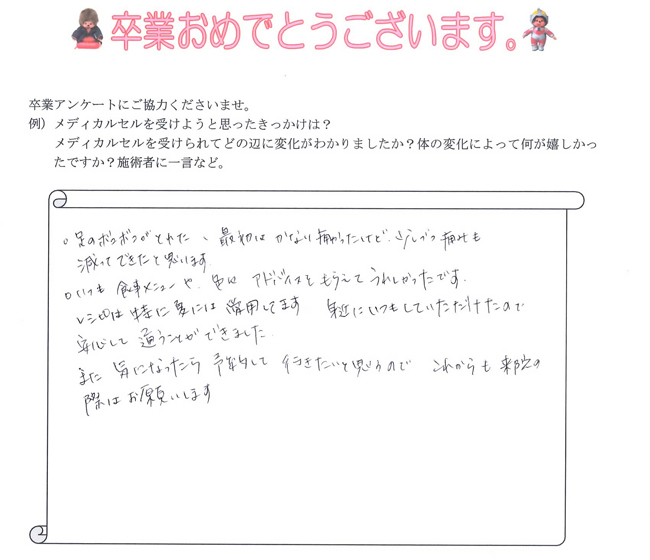 卒業おめでとうございます。
卒業アンケートにご協力くださいませ。
例）メディカルセルを受けようと思ったきっかけは？
メディカルセルを受けられてどの辺に変化がわかりましたか？体の変化によって何が嬉しかっ
たですか？施術者に一言など。
○足のボコボコがとれた、最初はかなり痛かったけど、少しづつ痛みも
減ってできたと思います
○いつも食事メニューや、色々アドバイスをもらえてうれしかったです。
レシピは特に夏には常用してます 身近にいつもしていただけたので
安心して通うことができました
また気になったら予約して行きたいと思うので これからも来院の
際はお願いします